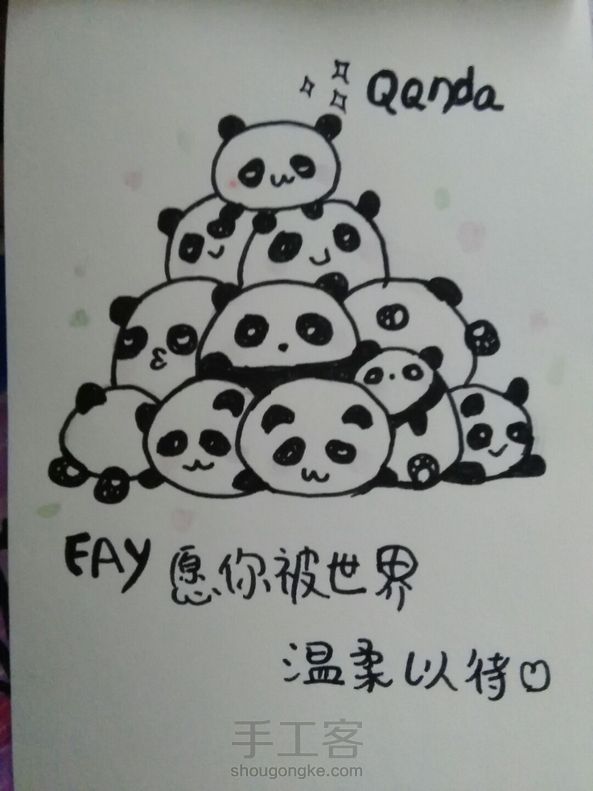 Qanda
FAY 愿你被世界
温柔以待
手工客
shougongke.com